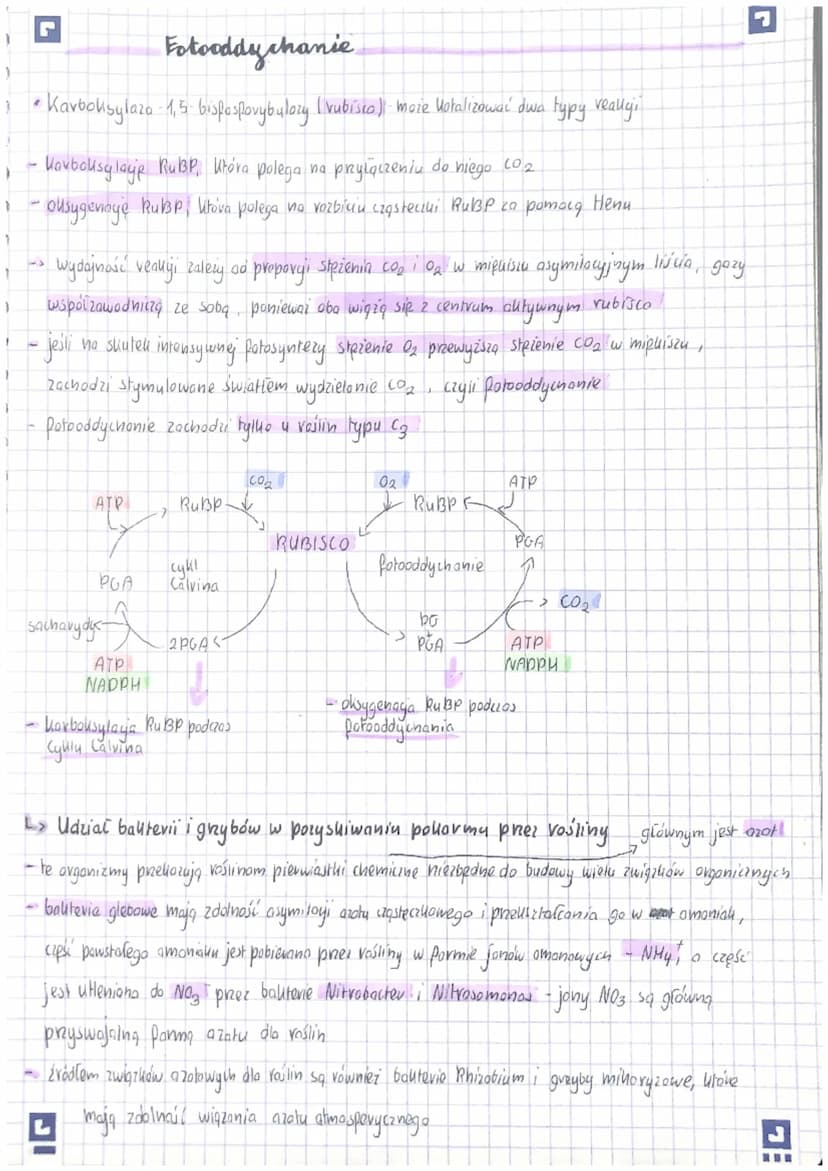 Fotooddychanie
• Karboksylaza 1,5-bisfosforybulozy (rubisco) może katalizować dwa typy reakcji
- karboksylację RuBP, która polega na przyłączeniu do niego CO2
- oksygenację RuBP, która polega na rozbiciu cząsteczki RuBP za pomocą tlenu
-> wydajność reakcji zależy od proporcji stężenia CO2 i O2 w miękiszu asymilacyjnym liścia, gazy
współzawodniczą ze sobą, ponieważ oba wiążą się z centrum aktywnym rubisco
- jeśli na skutek intensywnej fotosyntezy stężenie O2 przewyższa stężenie CO2 w miękiszu,
zachodzi stymulowane światłem wydzielanie CO2, czyli fotooddychanie
- fotooddychanie zachodzi tylko u roślin typu C3
CO2 O2 ATP
ATP RuBP RuBP
RUBISCO PGA
cykl Calvina fotooddychanie
PGA CO2
sacharydy PG + PGA
2PGA ATP NADPH
ATP NADPH
- karboksylacja RuBP podczas cyklu Calvina
- oksygenacja RuBP podczas fotooddychania
L> Udział bakterii i grzybów w pozyskiwaniu pokarmu przez rośliny głównym jest azot
- te organizmy przekazują roślinom pierwiastki chemiczne niezbędne do budowy wielu związków organicznych
- bakterie glebowe mają zdolność asymilacji azotu cząsteczkowego i przekształcania go w amoniak,
część powstałego amoniaku jest pobierana przez rośliny w formie jonów amonowych - NH4+, a część
jest utleniona do NO3- przez bakterie Nitrobacter i Nitrosomonas - jony NO3 są główną
przyswajalną formą azotu dla roślin
- źródłem związków azotowych dla roślin są również bakterie Rhizobium i grzyby mikoryzowe, które
mają zdolność wiązania azotu atmosferycznego